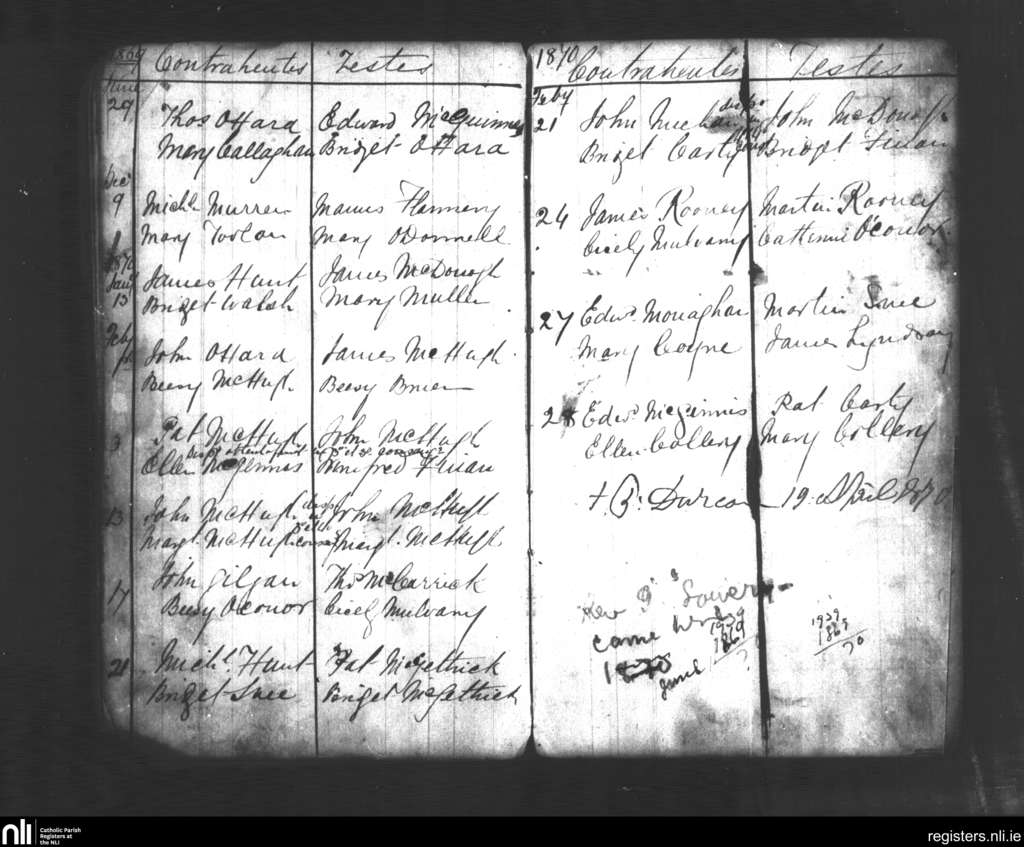 1869 Contrahentes Testes
June
29 Thos OHara Edward McGuinness
Mary Callaghan Bridget OHara
Dec
9 Michl Murren Manus Flannery
Mary Mary ODonnell
1870
Jany James Hunt James McDonogh
13 Bridget Walsh Mary Mullen
Feby
John OHara James McHugh
Beesy McHugh Beesy Brien
3 Pat McHugh John McHugh
Ellen McGennis Winifred Finan
13 John McHugh disp John McHugh
Margt. McHugh Margt. McHugh
17 John Gilgan Thos McCarrick
Beesy OConor Cicely Mulvany
21 Michl. Hunt Pat McGettrick
Bridget Snee Bridget McGettrick
1870 Contrahentes Testes
Feby
21 John Meehan John McDonogh
Bridget Carty Bridget Finan
24 James Rooney Martin Rooney
Cicely Mulvany Catherine O'Conor
27 Edwd. Monaghan Martin Snee
Mary Coyne James Lyndsay
28 Edwd. McGinnis Pat Carty
Ellen Collery Mary Collery
+ P: Durcan 19 April 1870
Rev
came
1939 1939
1869 1869
70 70
June
nli Catholic Parish
Registers at
the NLI
registers.nli.ie